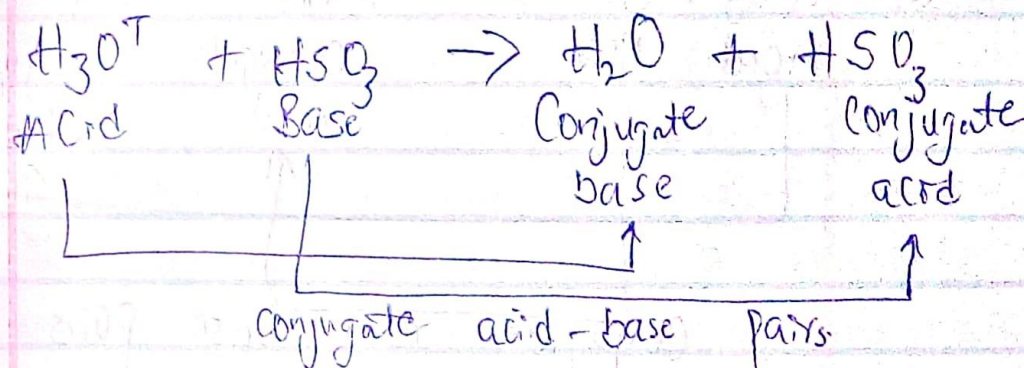 H₃O⁺ + HSO₃ → H₂O + HSO₃
Acid Base Conjugate conjugate
base acid
conjugate acid - base pairs